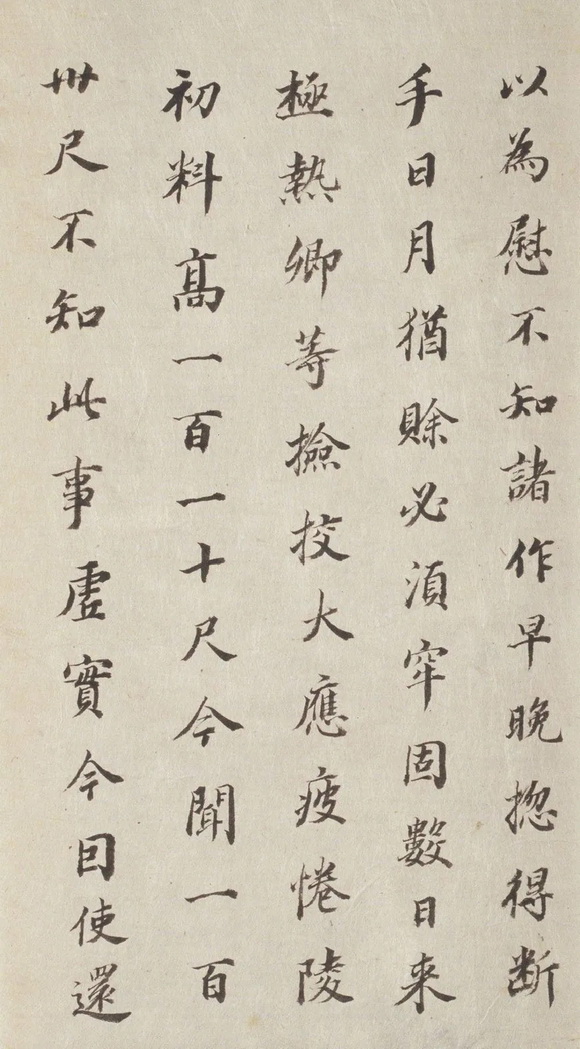 以為慰不知諸作早晚捴得断
手日月猶賒必須牢固數日来
極熱卿等撿挍大應疲惓陵
初料高一百一十尺今聞一百
卅尺不知此事虛實今囙使還